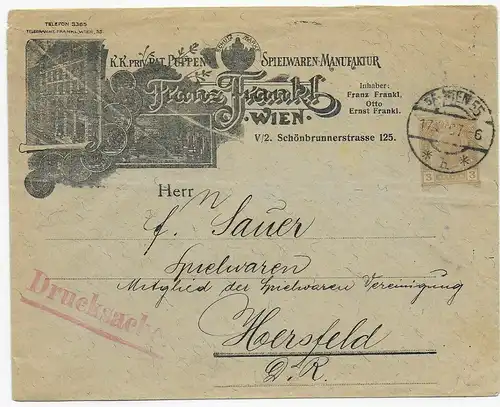 TELEFON 5365
TELEGRAMME: FRANKL, WIEN, 55.
SCHUTZ MARKE
K.K. PRIV. PAT. PUPPEN- SPIELWAREN-MANUFAKTUR
Franz Frankl
WIEN.
Inhaber:
Franz Frankl,
Otto
Ernst Frankl.
V/2. Schönbrunnerstrasse 125.
WIEN 55
6
3 3
Herrn
Sauer
Spielwaren
Mitglied der Spielwaren Vereinigung
Drucksache
Hersfeld
D. R.